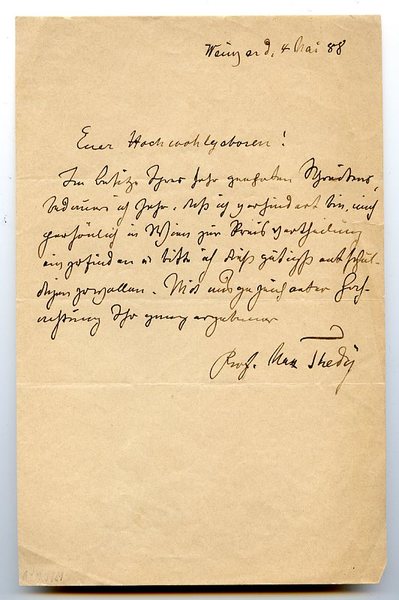 Weimar d. 4 Mai 88
Euer Hochwohlgeboren!
Im Besitze Ihres sehr geehrten Schreibens,
bedaure ich sehr, daß ich verhindert bin, mich
persönlich in Wien zur Preisvertheilung
einzufinden u bitte ich dieß gütigst entschul-
digen zu wollen. Mit ausgezeichneter Hoch-
achtung Ihr ganz ergebener
Prof. Max Thedy